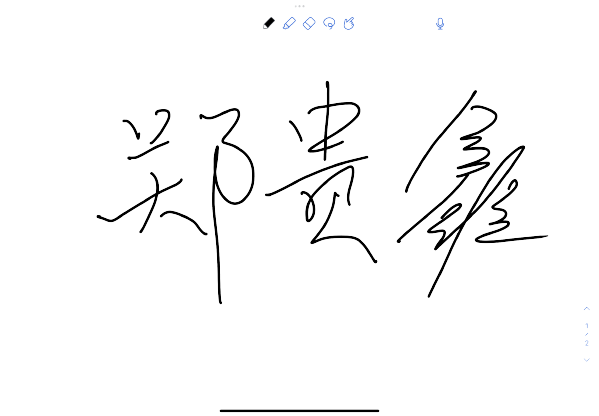 郑贵鑫
1
2